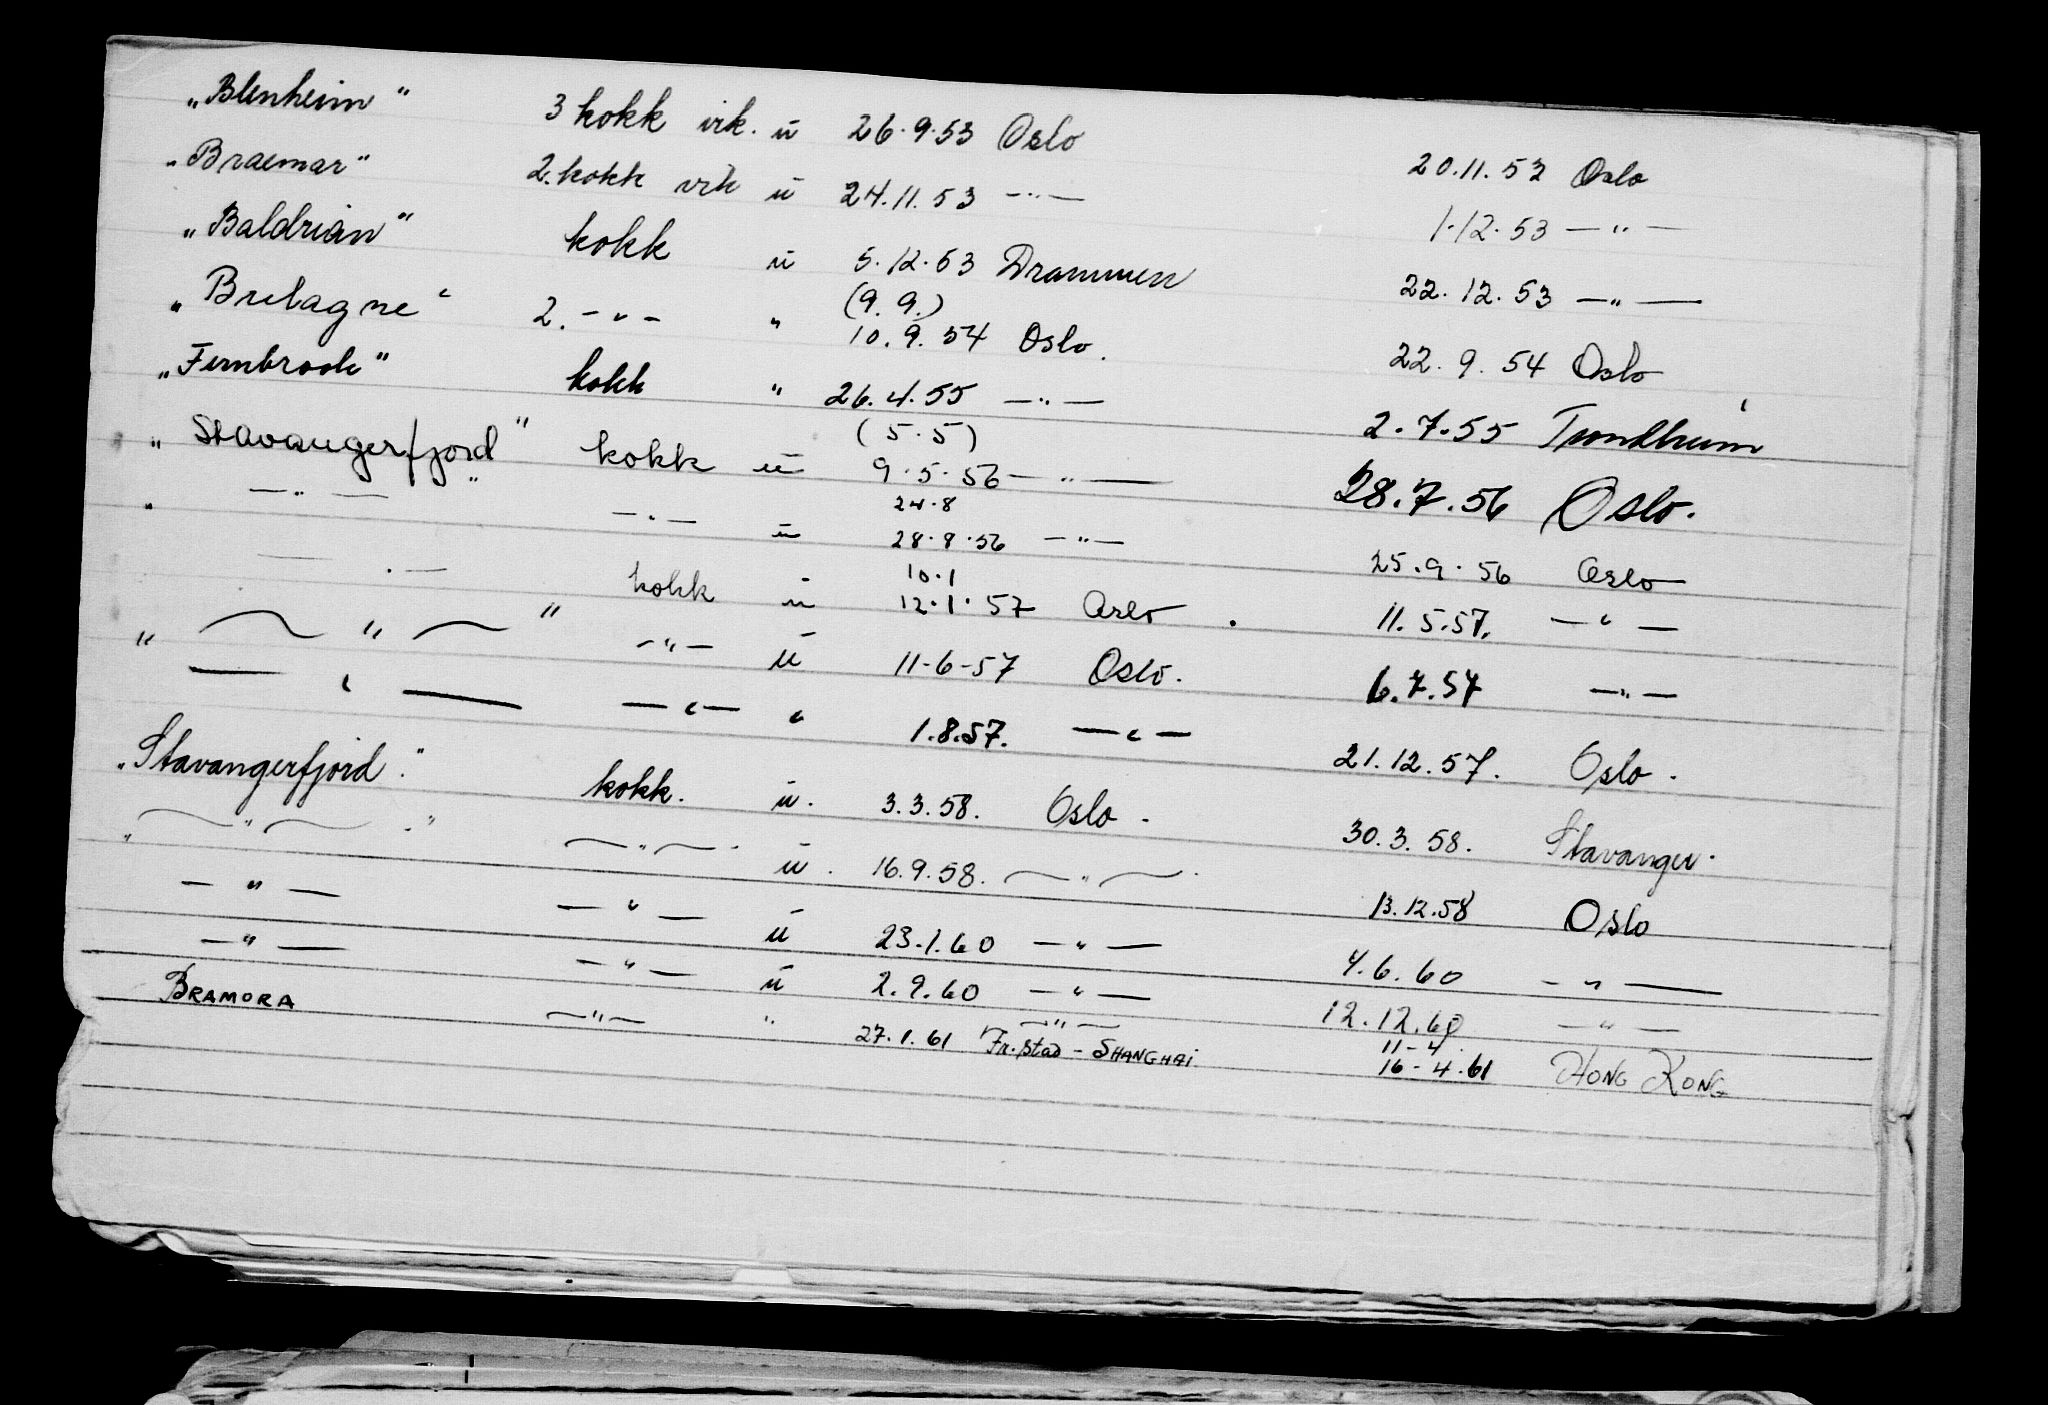 „Blenheim" 3 kokk vik. u 26.9.53 Oslo 20.11.53 Oslo
„Braemar" 2. kokk vik u 24.11.53 —"— 1.12.53 —"—
„Baldrian" kokk u 5.12.53 Drammen 22.12.53 —"—
(9.9.)
„Bretagne" 2. -"- " 10.9.54 Oslo. 22.9.54 Oslo
„Fernbrook" kokk " 26.4.55 —"— 2.7.55 Trondheim
(5.5)
„Stavangerfjord" kokk u 9.5.56 —"— 28.7.56 Oslo.
24.8
" —"— " —"— u 28.8.56 —"— 25.9.56 Oslo
10.1
—"— kokk u 12.1.57 Oslo. 11.5.57. —"—
" —"— " —"— u 11-6-57 Oslo. 6.7.57 —"—
—"— —"— " 1.8.57. —"— 21.12.57. Oslo.
„Stavangerfjord." kokk. u. 3.3.58. Oslo. 30.3.58. Stavanger.
„ —"— ." —"— . u. 16.9.58. —"— . 13.12.58 Oslo
—"— —"— u 23.1.60 —"— 4.6.60 —"—
—"— —"— u 2.9.60 —"— 12.12.60 —"—
—"— 11-4
BRAMORA —"— " 27.1.61 Fr.stad - SHANGHAI. 16-4.61 HONG KONG